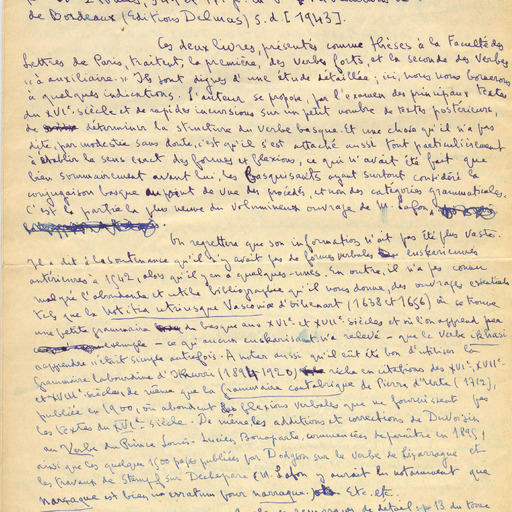 de Bordeaux (Editions Delmas) s.d. [1943].
Ces deux livres, présentés comme thèses à la Faculté des
Lettres de Paris, traitent, la première, des verbes forts, et la seconde des verbes
"à auxiliaire". Ils sont dignes d'une étude détaillée; ici, nous nous bornerons
à quelques indications. L'auteur se propose, par l'examen des principaux textes
du XVIe siècle et de rapides incursions sur un petit nombre de textes postérieurs,
de déterminer la structure du verbe basque. Et une chose qu'il n'a pas
dite, par modestie sans doute, c'est qu'il s'est attaché aussi tout particulièrement
à établir le sens exact des formes et flexions, ce qui n'avait été fait que
bien sommairement avant lui, les basquisants ayant surtout considéré la
conjugaison basque au point de vue des procédés, et non des catégories grammaticales.
C'est la partie la plus neuve du volumineux ouvrage de M. Lafon.
On regrettera que son information n'ait pas été plus vaste.
Il a dit à la soutenance qu'il n'y avait pas de formes verbales euskeriennes
antérieures à 1542, alors qu'il y en a quelques-unes. En outre, il n'a pas connu
malgré l'abondante et utile bibliographie qu'il nous donne, des ouvrages essentiels
tels que la Notitia utriusque Vasconiae d'Oihenart (1638 et 1656) où se trouve
une petite grammaire du basque aux XVIe et XVIIe siècles et où l'on apprend par
exemple - ce qui aucun euskarisant n'a relevé - que le verbe ikhasi
"apprendre" était simple autrefois. A noter aussi qu'il eût été bon d'utiliser la
Grammaire labourdine d'Ithurry (1894-1920) riche en citations des XVIe, XVIIe
et XVIIIe siècles, de même que la Grammaire cantabrique de Pierre d'Urte (1712),
publiée en 1900, où abondent des flexions verbales que ne fournissent pas
les textes du XVIe siècle. De même les additions et corrections de Duvoisin
au Verbe du Prince Louis-Lucien Bonaparte, commencées de paraître en 1895,
ainsi que les quelque 1500 pages publiées par Dodgson sur le verbe de Liçarrague et
les travaux de Stempf sur Dechepare (M. Lafon y aurait lu notamment que
narraque est bien un erratum pour narrague. Etc. etc.
de détail: p. 13 du tome